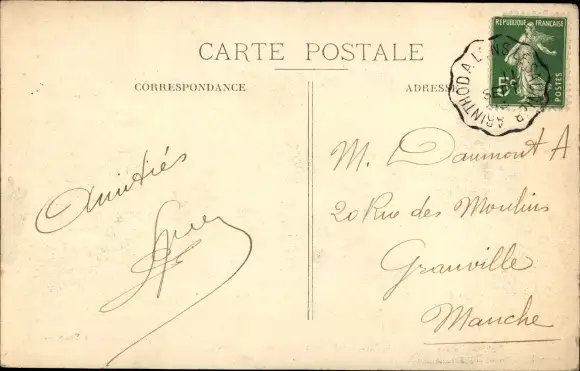 CARTE POSTALE
CORRESPONDANCE
ADRESSE
RÉPUBLIQUE FRANÇAISE
5c
POSTES
ARINTHOD A LONS
Amitiés
M. Daumont A
20 Rue des Moulins
Granville
Manche